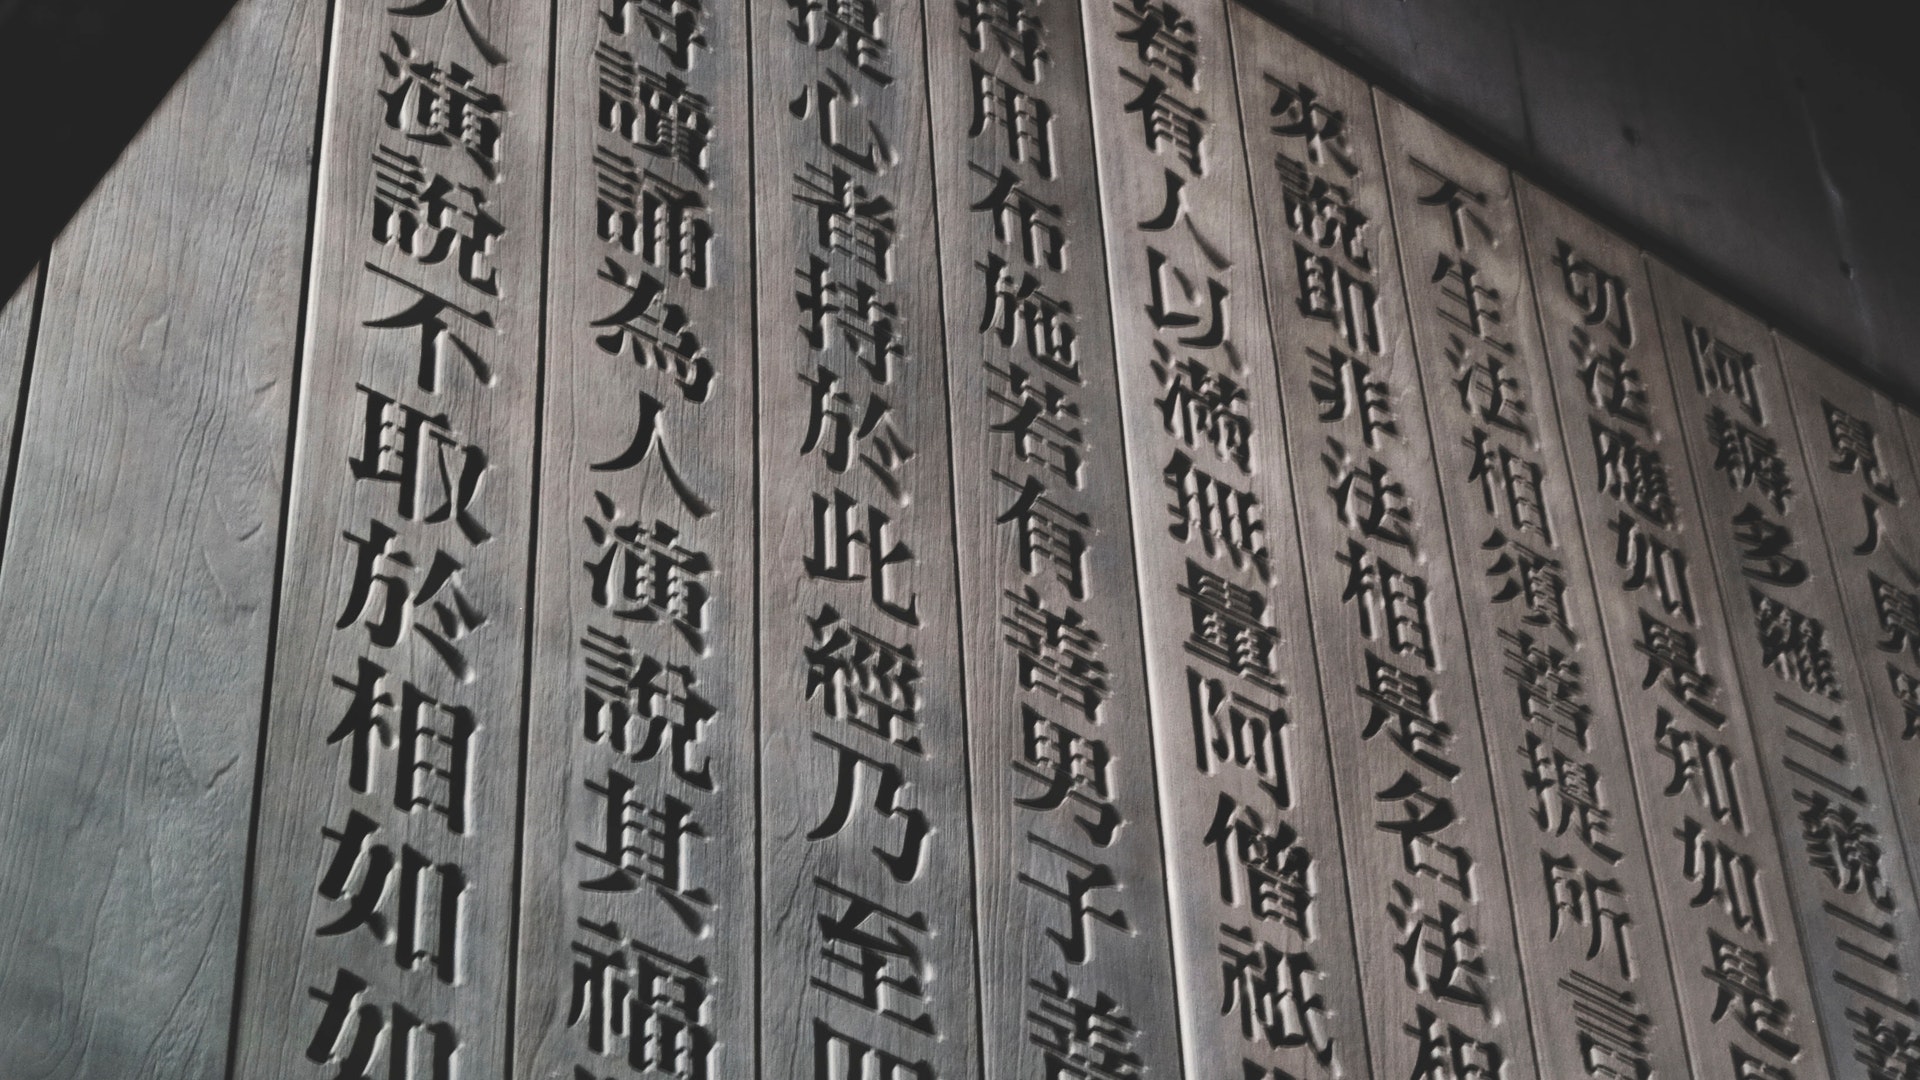 見人見
阿耨多羅三藐三菩
切法應如是知如是見
不生法相須菩提所言
來說即非法相是名法相
若有人以滿無量阿僧祇
持用布施若有善男子善
提心者持於此經乃至四
持讀誦為人演說其福
人演說不取於相如如